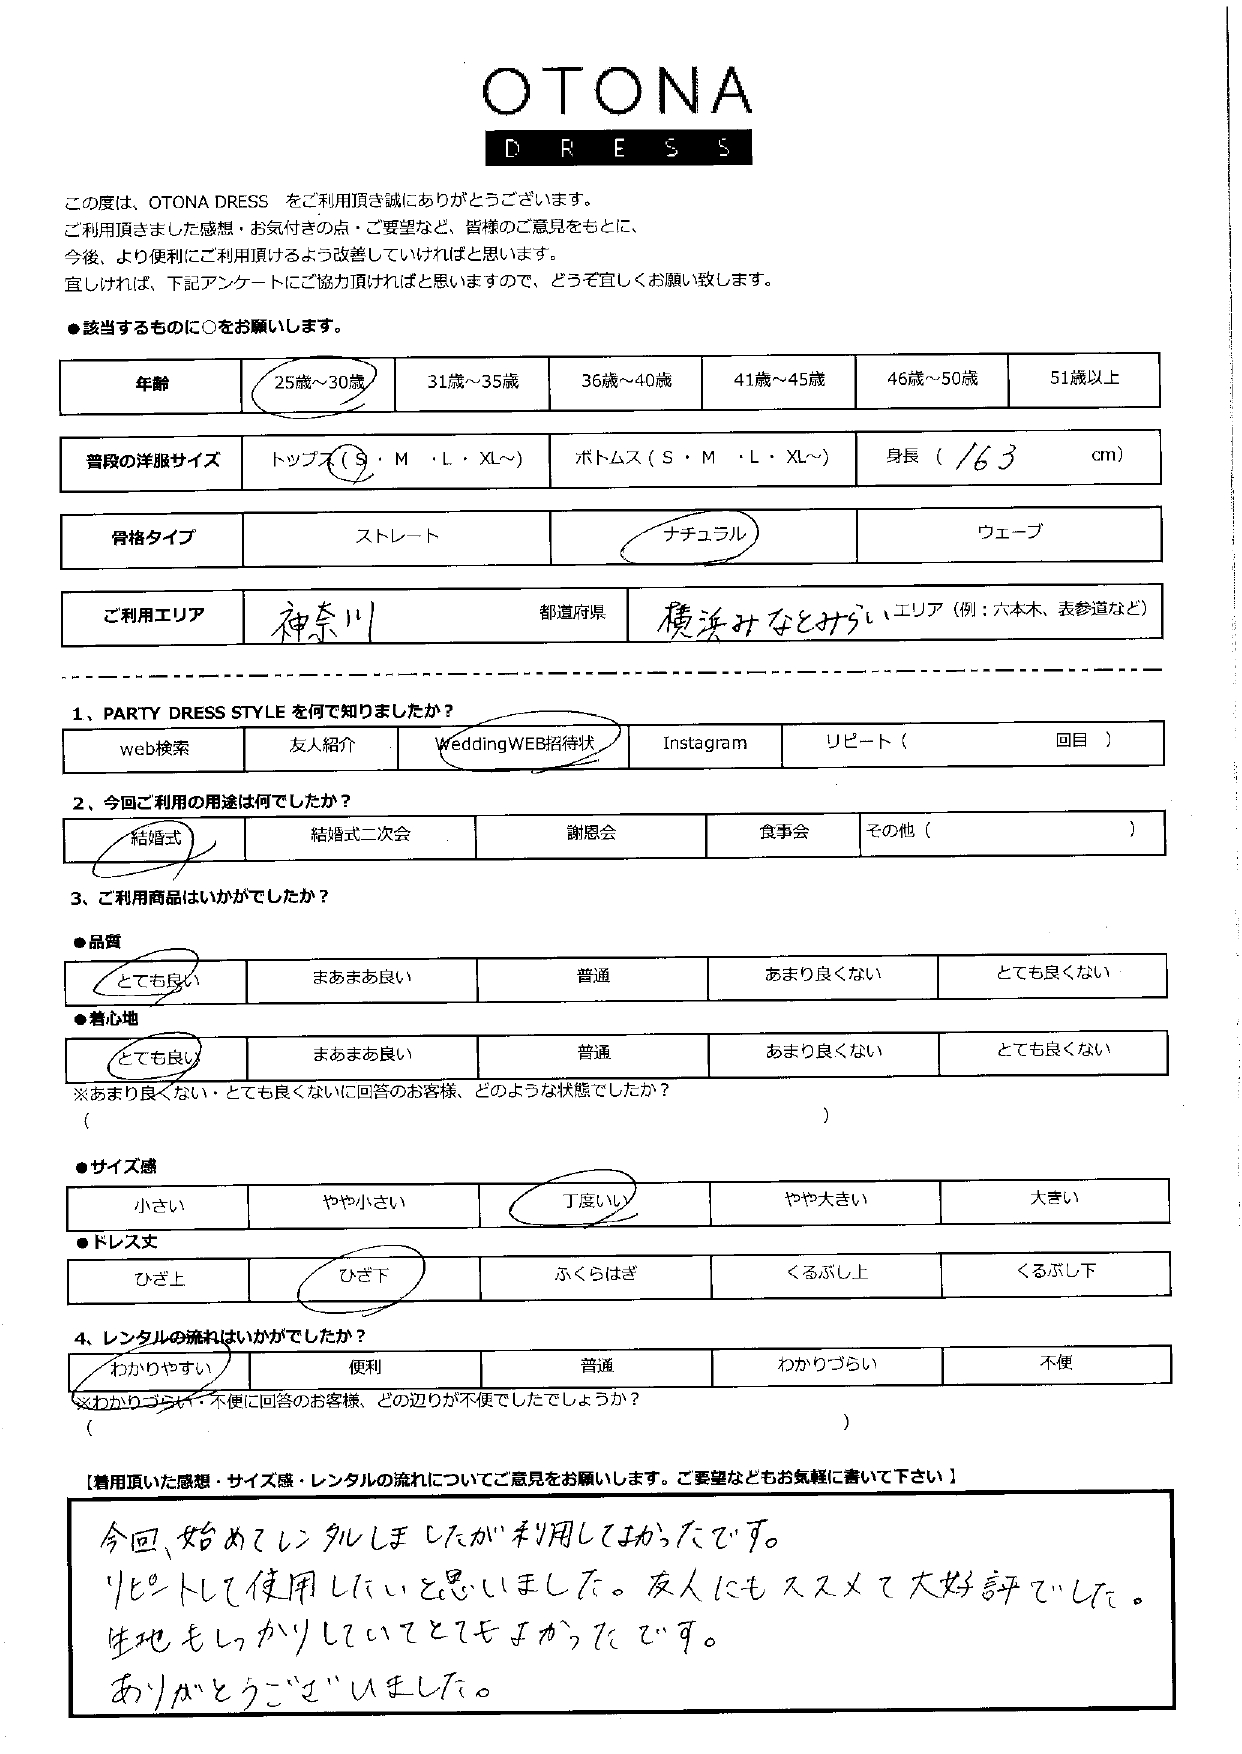 OTONA
DRESS
この度は、OTONA DRESS をご利用頂き誠にありがとうございます。
ご利用頂きました感想・お気付きの点・ご要望など、皆様のご意見をもとに、
今後、より便利にご利用頂けるよう改善していければと思います。
宜しければ、下記アンケートにご協力頂ければと思いますので、どうぞ宜しくお願い致します。
●該当するものに○をお願いします。
年齢 25歳～30歳 31歳～35歳 36歳～40歳 41歳～45歳 46歳～50歳 51歳以上
普段の洋服サイズ トップス ( S ・ M ・L ・ XL～) ボトムス ( S ・ M ・L ・ XL～) 身長 ( 163 cm)
骨格タイプ ストレート ナチュラル ウェーブ
ご利用エリア 神奈川 都道府県 横浜みなとみらい エリア（例：六本木、表参道など）
1、PARTY DRESS STYLE を何で知りましたか？
web検索 友人紹介 WeddingWEB招待状 Instagram リピート ( 回目 )
2、今回ご利用の用途は何でしたか？
結婚式 結婚式二次会 謝恩会 食事会 その他 ( )
3、ご利用商品はいかがでしたか？
●品質
とても良い まあまあ良い 普通 あまり良くない とても良くない
●着心地
とても良い まあまあ良い 普通 あまり良くない とても良くない
※あまり良くない・とても良くないに回答のお客様、どのような状態でしたか？
( )
●サイズ感
小さい やや小さい 丁度いい やや大きい 大きい
●ドレス丈
ひざ上 ひざ下 ふくらはぎ くるぶし上 くるぶし下
4、レンタルの流れはいかがでしたか？
わかりやすい 便利 普通 わかりづらい 不便
※わかりづらい・不便に回答のお客様、どの辺りが不便でしたでしょうか？
( )
【着用頂いた感想・サイズ感・レンタルの流れについてご意見をお願いします。ご要望などもお気軽に書いて下さい】
今回、始めてレンタルしましたが利用してよかったです。
リピートして使用したいと思いました。友人にもススメて大好評でした。
生地もしっかりしていてとてもよかったです。
ありがとうございました。